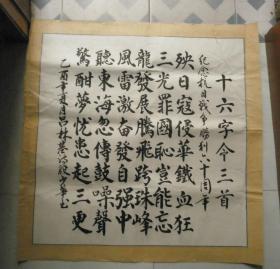 十六字令三首
紀念抗日戰争勝利六十周年
殃日寇侵華鐵血狂
三光罪國恥豈能忘
龍發展騰飛跨珠峰
風雷激奮發自强中
聽東海忽傳鼓噪聲
驚酣夢忧患起三更
乙酉年夏月吕林